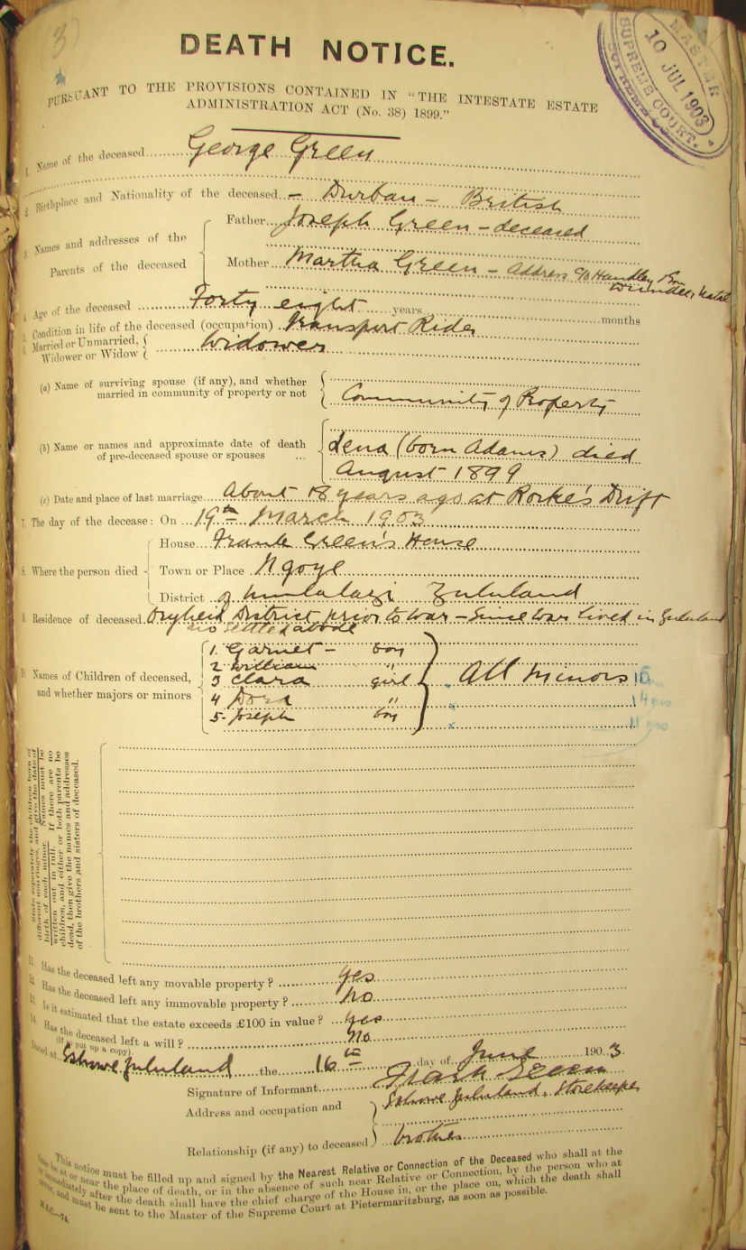 3)
DEATH NOTICE.
MASTER
SUPREME COURT.
10 JUL 1903
PURSUANT TO THE PROVISIONS CONTAINED IN "THE INTESTATE ESTATE
ADMINISTRATION ACT (No. 38) 1899."
1. Name of the deceased George Green
2. Birthplace and Nationality of the deceased – Durban – British
3. Names and addresses of the Parents of the deceased
Father Joseph Green – deceased
Mother Martha Green – address c/o Handley
Dundee, Natal
4. Age of the deceased Forty eight years months
5. Condition in life of the deceased (occupation) Transport Rider
Married or Unmarried,
Widower or Widow
Widower
(a) Name of surviving spouse (if any), and whether
married in community of property or not
Community of Property
(b) Name or names and approximate date of death
of pre-deceased spouse or spouses ...
Lena (born Adams) died
August 1899
(c) Date and place of last marriage About 18 years ago at Rorke's Drift
7. The day of the decease: On 19th March 1903
8. Where the person died
House Frank Green's House
Town or Place Ngoye
District of Umlalazi Zululand
9. Residence of deceased Vryheid District prior to War – Since War lived in Zululand
no settled abode
10. Names of Children of deceased,
and whether majors or minors
1. Garnet – boy
2 William "
3 Clara girl
4 Dora "
5. Joseph boy
All Minors
State separately the children born of
different marriages, and give the date of
birth of each minor. Names must be
written out in full. If there are no
children, and either or both parents be
dead, then give the names and addresses
of the brothers and sisters of deceased.
11. Has the deceased left any movable property? Yes
12. Has the deceased left any immovable property? No
13. Is it estimated that the estate exceeds £100 in value? Yes
14. Has the deceased left a will? No
(If so put up a copy)
Dated at Eshowe Zululand the 16th day of June 1903
Signature of Informant Frank Green
Address and occupation and
Eshowe Zululand. Storekeeper
Relationship (if any) to deceased brother
This notice must be filled up and signed by the Nearest Relative or Connection of the Deceased who shall at the
time be at or near the place of death, or in the absence of such near Relative or Connection, by the person who at
or immediately after the death shall have the chief charge of the House in, or the place on, which the death shall
occur, and must be sent to the Master of the Supreme Court at Pietermaritzburg, as soon as possible.